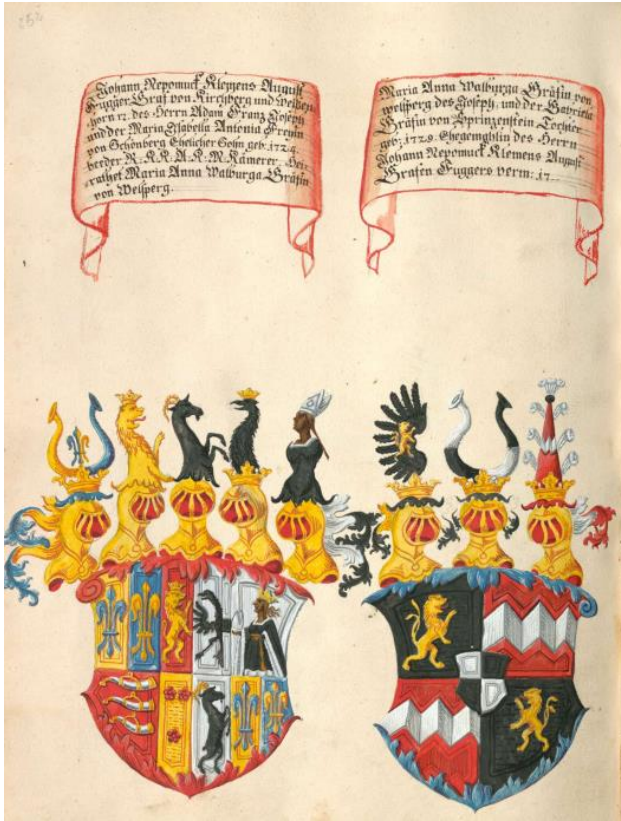 254
Johann Nepomuck Klemens August
Fugger Graf von Kirchberg und Weißen-
horn rc. des Herrn Adam Franz Joseph
und der Maria Isabella Antonia Freyin
von Schönberg Ehelicher Sohn geb: 1724.
beeder R: K. K: A: K. M Kämerer. Hei-
rathet Maria Anna Walburga Gräfin
von Welsperg.
Maria Anna Walburga Gräfin von
welsperg des Joseph, und der Gabriela
Gräfin von Sprinzenstein Tochter
geb: 1729. Ehegemahlin des Herrn
Johann Nepomuck Klemens August
Grafen Fuggers verm: 17